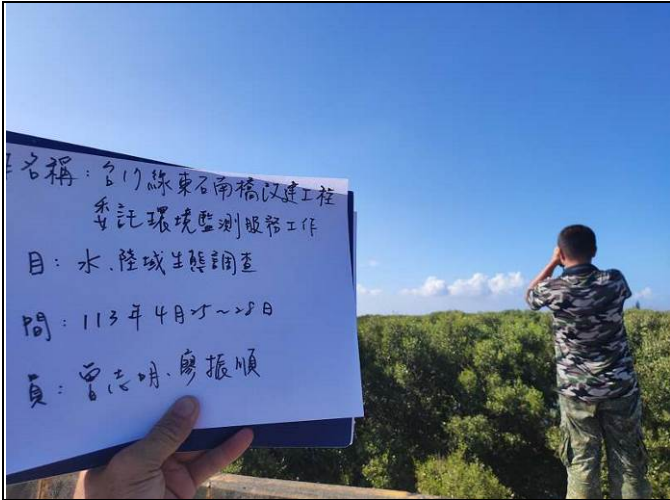 名稱：台17線東石南橋改建工程
委託環境監測服務工作
目：水、陸域生態調查
間：113年4月25~28日
員：曾志明、廖振順